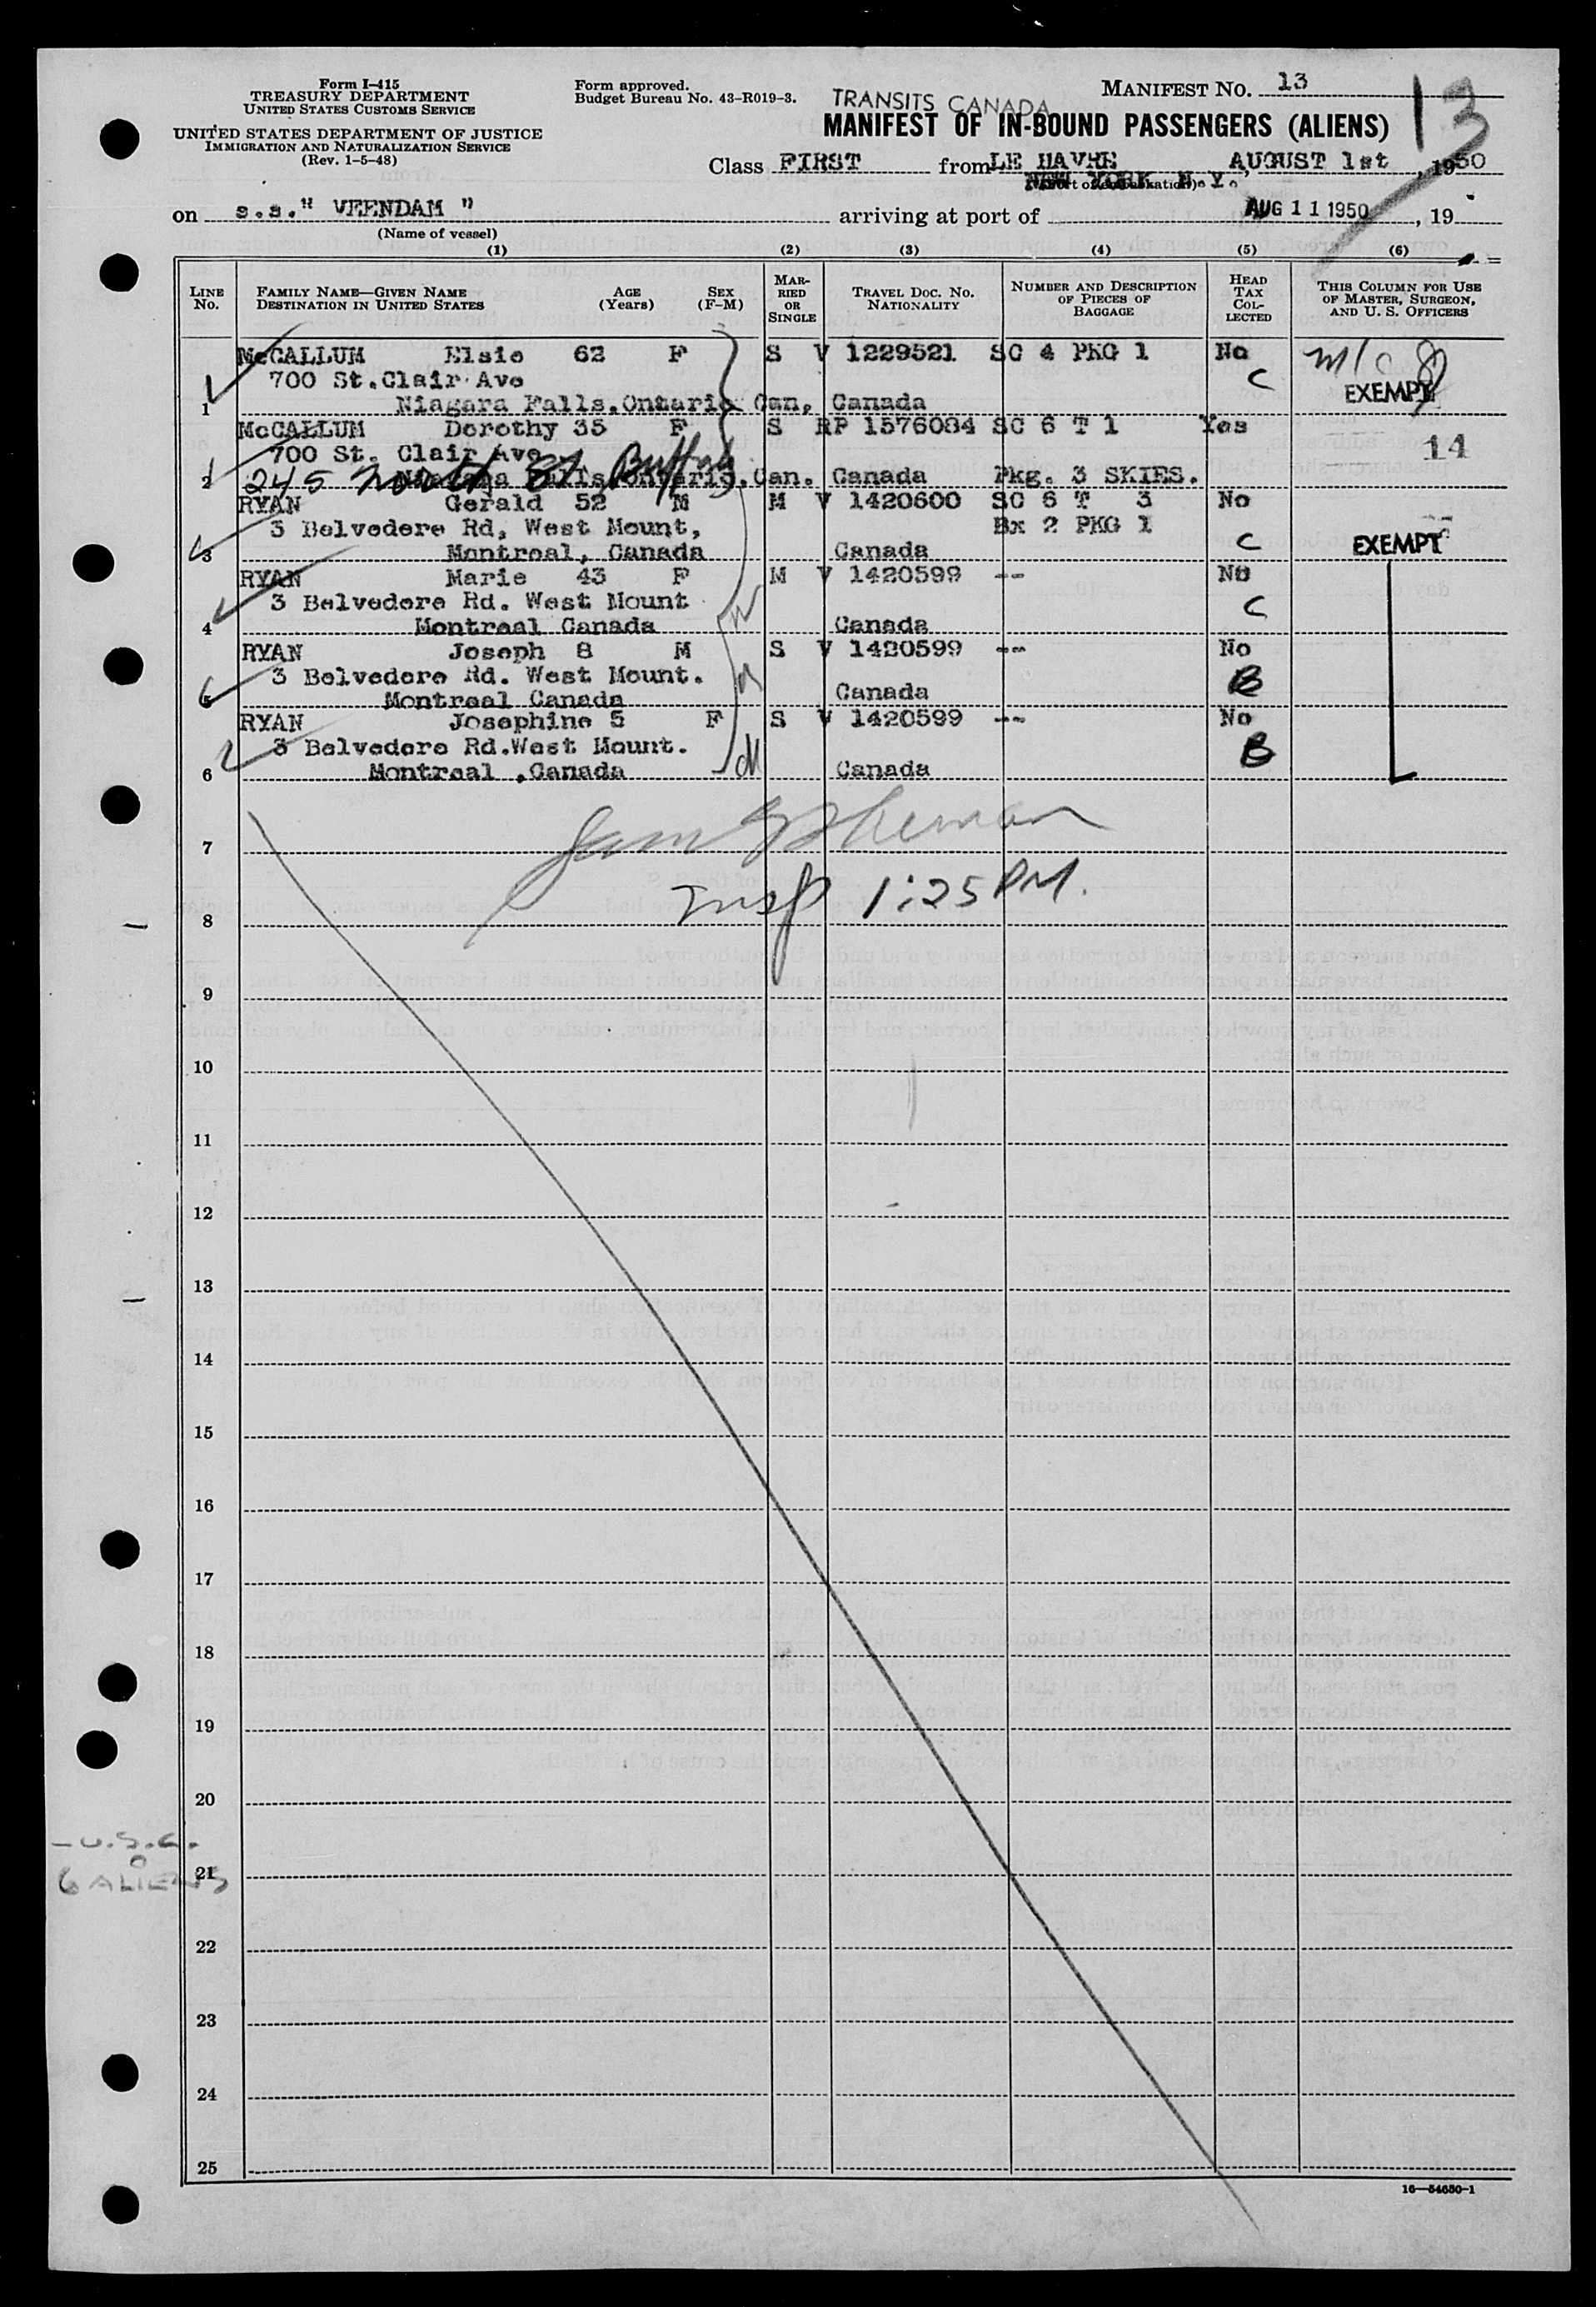 Form I-415
TREASURY DEPARTMENT
UNITED STATES CUSTOMS SERVICE
UNITED STATES DEPARTMENT OF JUSTICE
IMMIGRATION AND NATURALIZATION SERVICE
(Rev. 1-5-48)
Form approved.
Budget Bureau No. 43-R019-3.
TRANSITS CANADA
MANIFEST NO. 13
13
MANIFEST OF IN-BOUND PASSENGERS (ALIENS)
Class FIRST from LE HAVRE, AUGUST 1st, 1950
NEW YORK N.Y.
on s.s." VEENDAM " arriving at port of AUG 11 1950, 19
(Name of vessel)
(1) (2) (3) (4) (5) (6)
LINE NO.
FAMILY NAME—GIVEN NAME DESTINATION IN UNITED STATES
AGE (Years)
SEX (F-M)
MARRIED OR SINGLE
TRAVEL DOC. NO. NATIONALITY
NUMBER AND DESCRIPTION OF PIECES OF BAGGAGE
HEAD TAX COLLECTED
THIS COLUMN FOR USE OF MASTER, SURGEON, AND U. S. OFFICERS
McCALLUM Elsie 62 F S V 1229521 SC 4 PKG 1 No
700 St.Clair Ave C EXEMPT
1 Niagara Falls,Ontario Can. Canada
McCALLUM Dorothy 35 F S RP 1576084 SC 6 T 1 Yes
700 St. Clair Ave 14
2 Niagara Falls Ontario.Can. Canada Pkg. 3 SKIES.
245 North St Buffalo
RYAN Gerald 52 M M V 1420600 SC 6 T 3 No
3 Belvedere Rd, West Mount, Bx 2 PKG 1
3 Montreal, Canada Canada C EXEMPT
RYAN Marie 43 F M V 1420599 -- No
3 Belvedere Rd. West Mount C
4 Montreal Canada Canada
RYAN Joseph 8 M S V 1420599 -- No
3 Belvedere Rd. West Mount. B
5 Montreal Canada Canada
RYAN Josephine 5 F S V 1420599 -- No
3 Belvedere Rd.West Mount. B
6 Montreal ,Canada Canada
7
Insp 1:25 PM.
8
9
10
11
12
13
14
15
16
17
18
19
20
- U.S.C.
21
6 ALIENS
22
23
24
25
16—54650-1